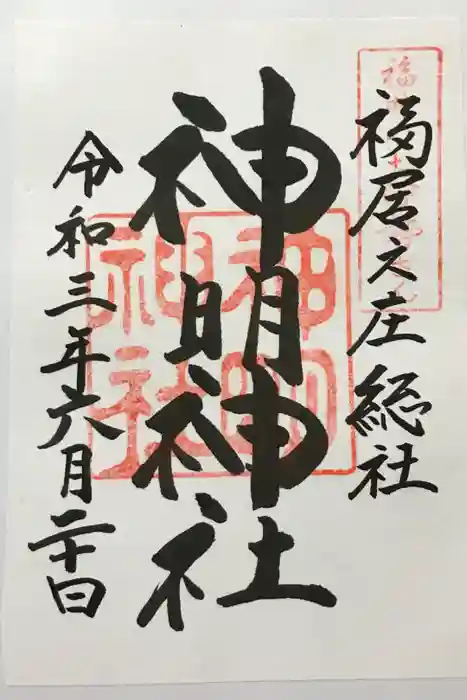 福居之庄総社
神明神社
令和三年六月二十日
神明
神社